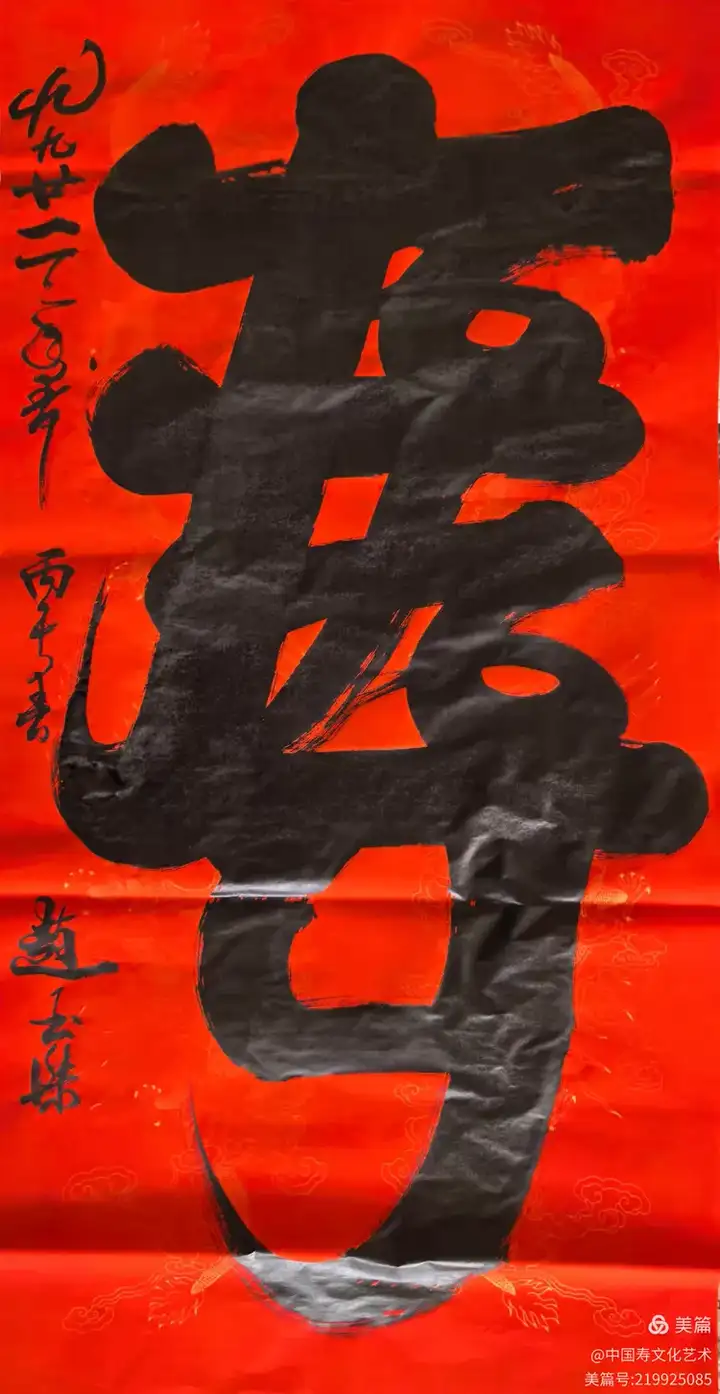 壽
九廿一二
丙午春
趙玉
美篇
@中国寿文化艺术
美篇号:219925085